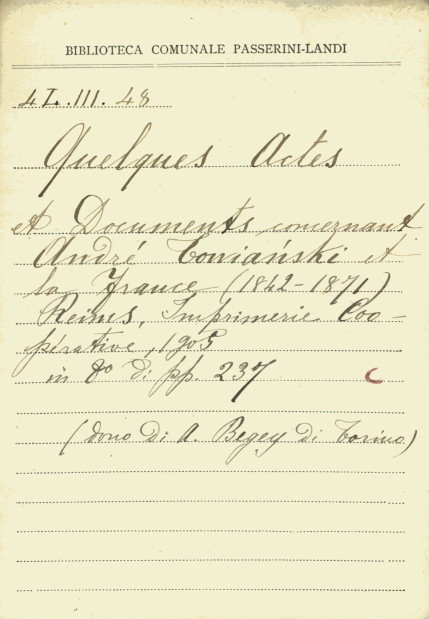 BIBLIOTECA COMUNALE PASSERINI-LANDI
4 I. .III. 48
Quelques Actes
et Documents concernant
André Towiański et
la France (1842-1871)
Reims, Imprimerie Coo-
pérative, 1905
in 8º di pp. 237
C
(dono di A. Begey di Torino)